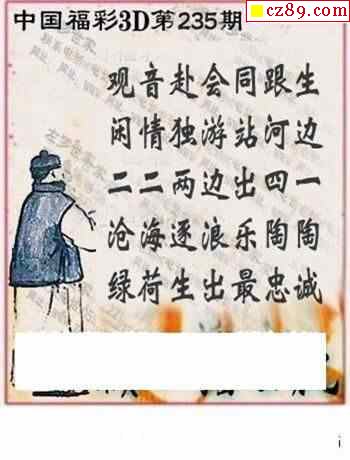 cz89.com
中国福彩3D第235期
观音赴会同跟生
闲情独游站河边
二二两边出四一
沧海逐浪乐陶陶
绿荷生出最忠诚